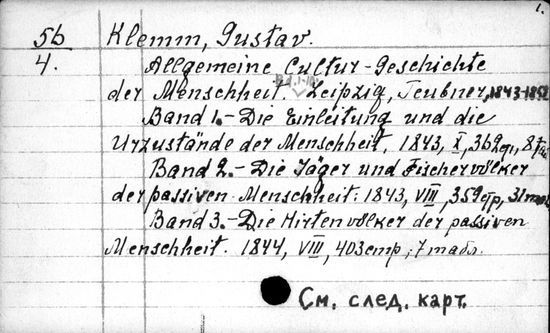 1.
5б Klemm, Gustav.
4. Allgemeine Cultur-Geschichte
der Menschheit. Leipzig, Teubner, 1843-1852
Band 1.-Die Einleitung und die
Urzustände der Menschheit, 1843, X, 362 стр, 8
Band 2.-Die Jäger und Fischervölker
der passiven Menschheit: 1843, VIII, 359 стр, 31 табл
Band 3.-Die Hirtenvölker der passiven
Menschheit. 1844, VIII, 403 стр; 7 табл.
См. след. карт.